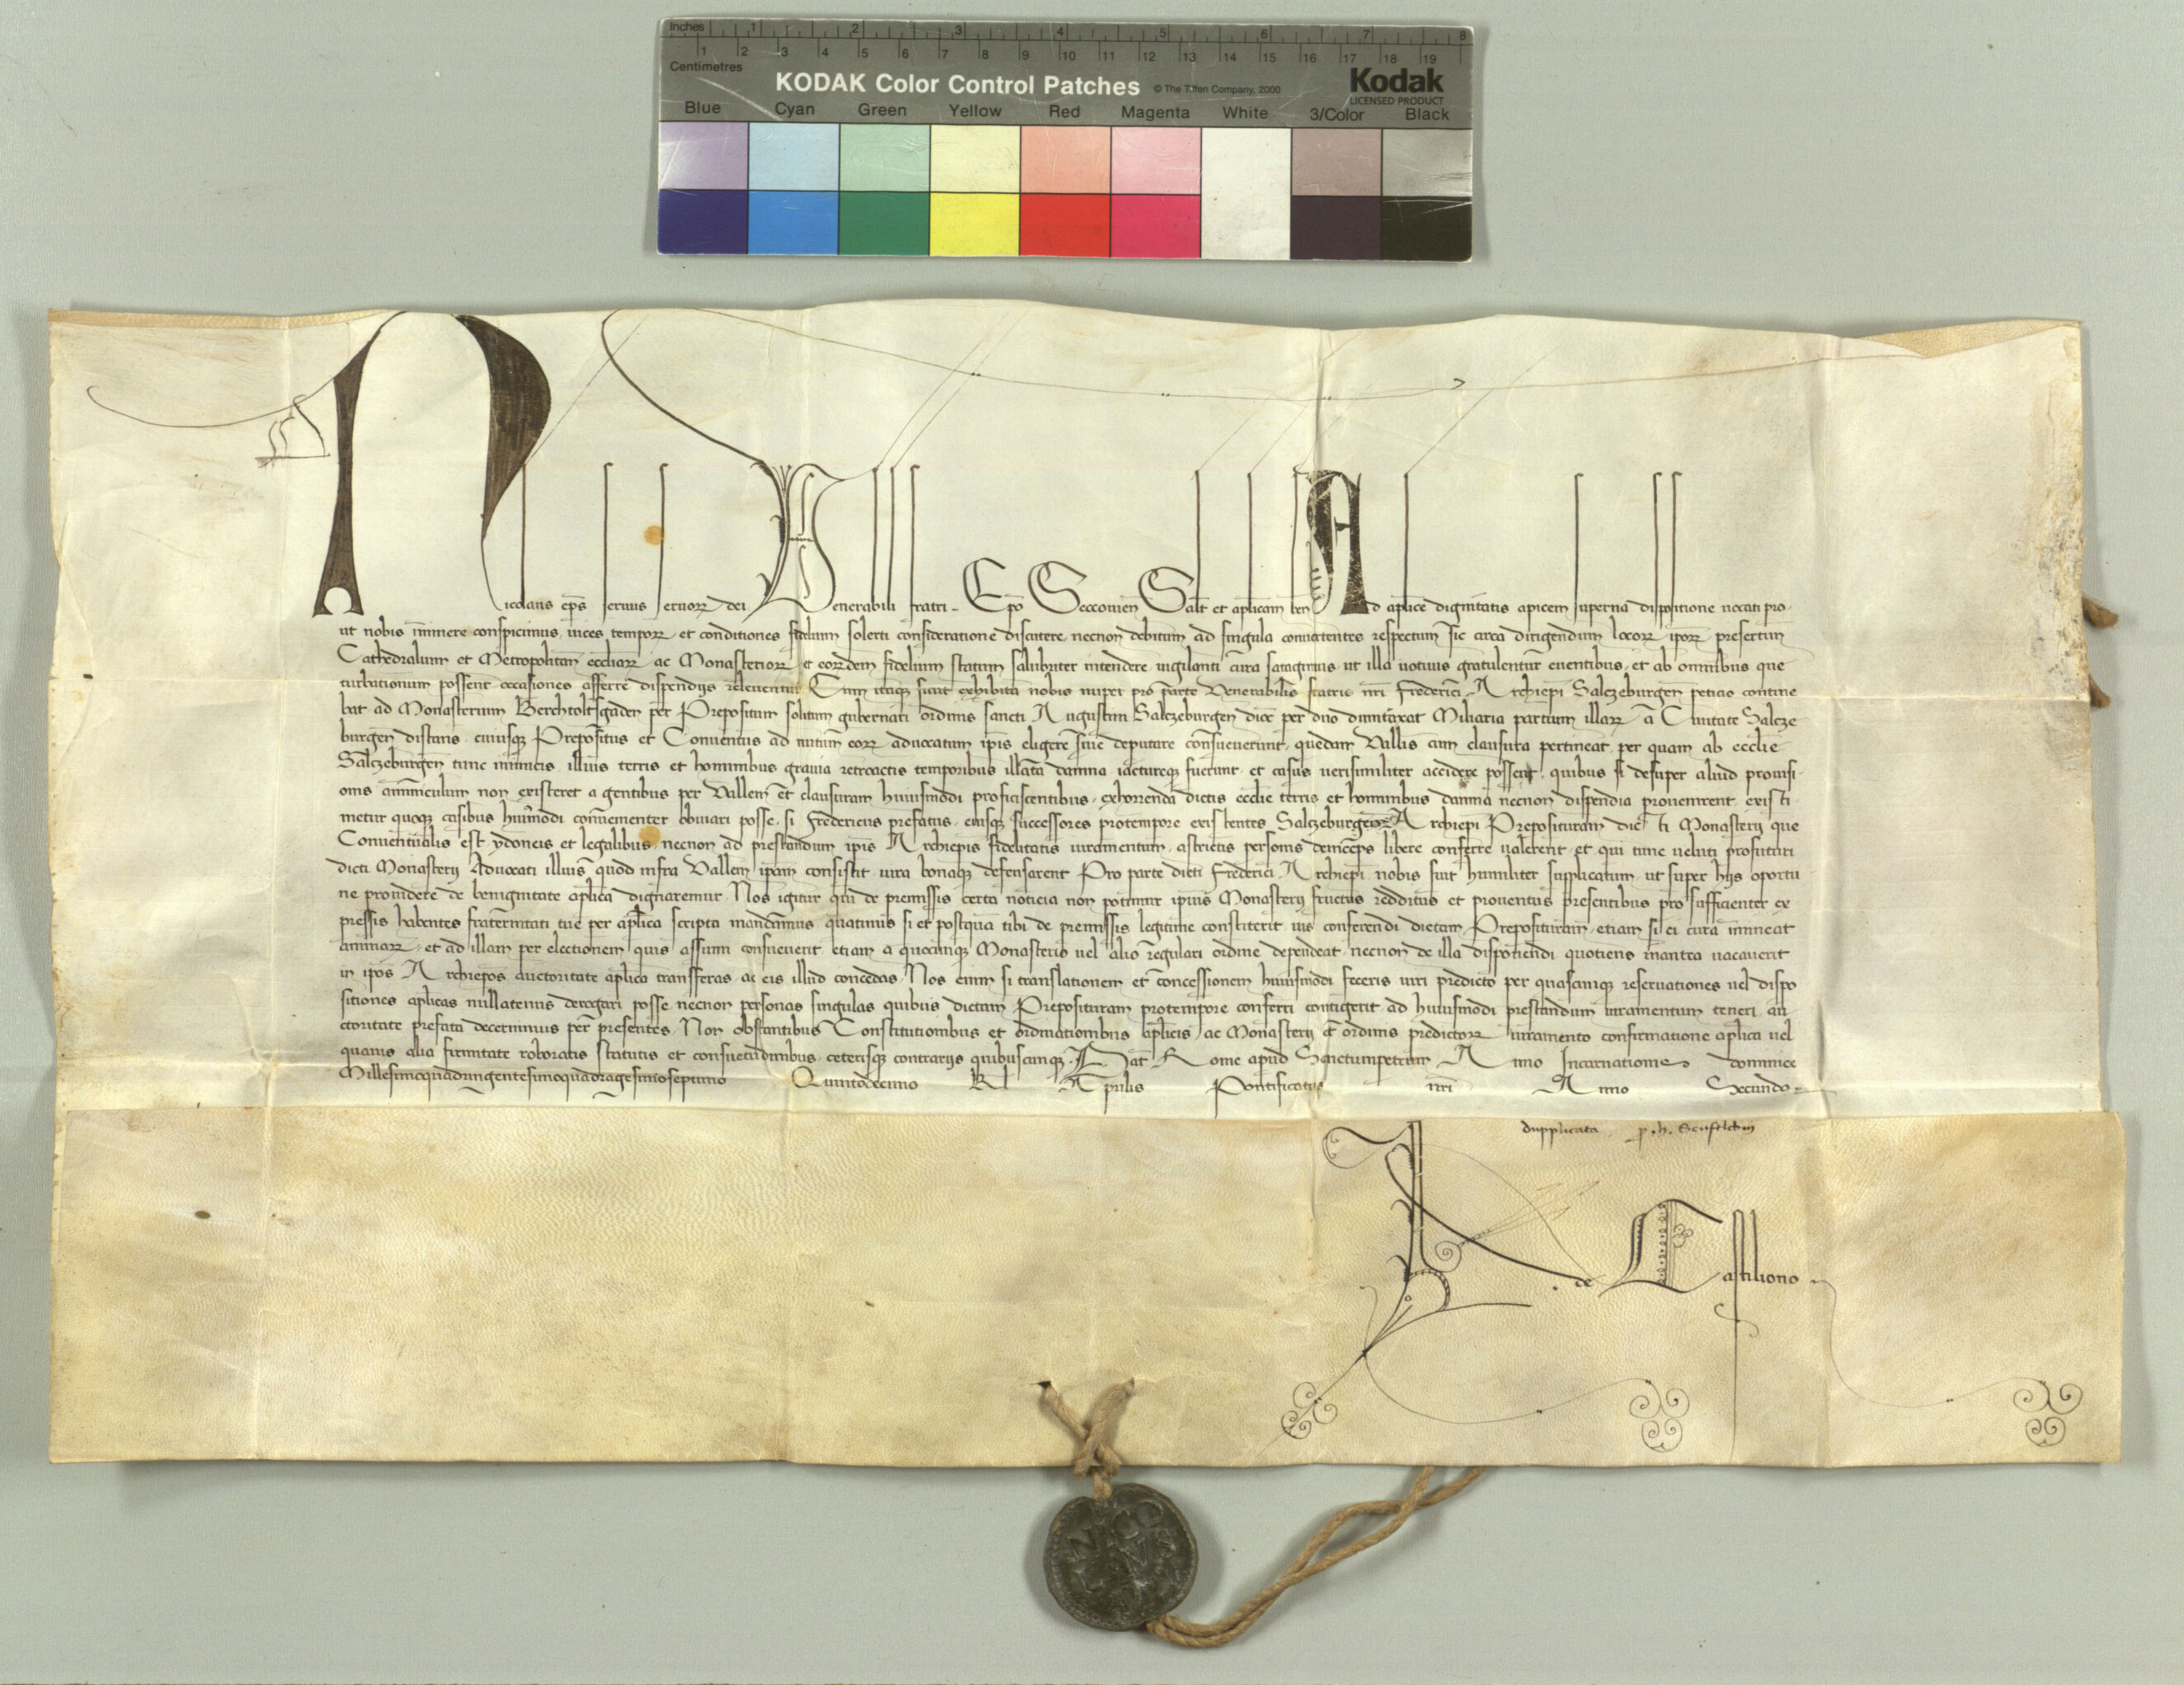 Inches 1 2 3 4 5 6 7 8
1 2 3 4 5 6 7 8 9 10 11 12 13 14 15 16 17 18 19
Centimetres
KODAK Color Control Patches © The Tiffen Company, 2000 Kodak
LICENSED PRODUCT
Blue Cyan Green Yellow Red Magenta White 3/Color Black
Nicolaus ep̄s seruus seruoꝝ dei Venerabili fratri Ep̄o Seccouien̄ Salt̄ et apl̄icam ben̄ Ad apl̄ice dignitatis apicem superna dispositione uocati pro-
ut nobis īminere conspicimus uices tempoꝝ et conditiones fidelium solerti consideratione discutere necnon debitum ad singula conuertentes respectum sic circa dirigendum locoꝝ ipoꝝ presertim
Cathedralium et Metropolitan̄ eccl̄iaꝝ ac Monasterioꝝ et eoꝝdem fidelium statum salubriter intendere uigilanti cura satagimus ut illa uotiuis gratulentur euentibus et ab omnibus que
turbationum possent occasiones afferre dispendijs releuentur Cum itaqꝫ sicut exhibita nobis nuper pro parte Venerabilis fratris nr̄i Frederici Archiepī Salczeburgen̄ petitio contine
bat ad Monasterium Berchtoltsgaden per Prepositum solitum gubernari ordinis sancti Augustini Salczeburgen̄ dioc̄ per duo dumtaxat Miliaria partium illaꝝ a Ciuitate Salcze
burgen̄ distans cuiusqꝫ Prepositus et Conuentus ad nutum eoꝝ aduocatum ip̄is eligere siue deputare consueuerunt quedam Vallis cum clausura pertineat per quam ab eccl̄ie
Salczeburgen̄ tunc inimicis illius terris et hominibus grauia retroactis temporibus illata damna iactureqꝫ fuerunt et casus uerisimiliter accidere possent quibus si desuper aliud prouisi-
onis amminiculum non existeret a gentibus per Vallem et clausuram huiusmodi proficiscentibus exhorrenda dictis eccl̄ie terris et hominibus damna necnon dispendia prouenirent existi
metur quoqꝫ casibus huīmodi conuenienter obuiari posse si Fredericus prefatus eiusqꝫ successores protempore existentes Salczeburgen̄ Archiepī Preposituram dicti Monasterij que
Conuentualis est ydoneis et legalibus necnon ad prestandum ip̄is Archiep̄is fidelitatis iuramentum astrictis personis deinceps libere conferre ualerent et qui tunc ueluti profuturi
dicti Monasterij Aduocati illius quod infra Vallem ip̄am consistit iura bonaqꝫ defensarent Pro parte dicti Frederici Archiepī nobis fuit humiliter supplicatum ut super hijs oportu
ne prouidere de benignitate apl̄ica dignaremur Nos igitur qui de premissis certa noticia non potimur ipius Monasterij fructus redditus et prouentus presentibus pro sufficienter ex
pressis habentes fraternitati tue per apl̄ica scripta mandamus quatinus si et postquā tibi de premissis legitime constiterit ius conferendi dictam Preposituram etiam si ei cura immineat
animaꝝ et ad illam per electionem quis assumi consueuerit etiam a quocunqꝫ Monasterio uel alio regulari ordine dependeat necnon de illa disponendi quotiens inantea uacauerit
in ip̄os Archiep̄os auctoritate apl̄ica transferas ac eis illud concedas Nos enim si translationem et concessionem huiusmodi feceris iuri predicto per quascunqꝫ reseruationes uel dispo
sitiones apl̄icas nullatenus derogari posse necnon personas singulas quibus dictam Preposituram protempore conferri contigerit ad huiusmodi prestandum iuramentum teneri au
ctoritate prefata decernimus per presentes Non obstantibus Constitutionibus et ordinationibus apl̄icis ac Monasterij et ordinis predictoꝝ iuramento confirmatione apl̄ica uel
quauis alia firmitate roboratis statutis et consuetudinibus ceterisqꝫ contrarijs quibuscunqꝫ Dat̄ Rome apud Sanctumpetrum Anno Incarnationis dominice
Millesimoquadringentesimoquadragesimoseptimo Quintodecimo Kl̄ Aprilis Pontificatus nr̄i Anno Secundo
dupplicata p. h. Senftleben
de Castiliono
NICO
LAVS